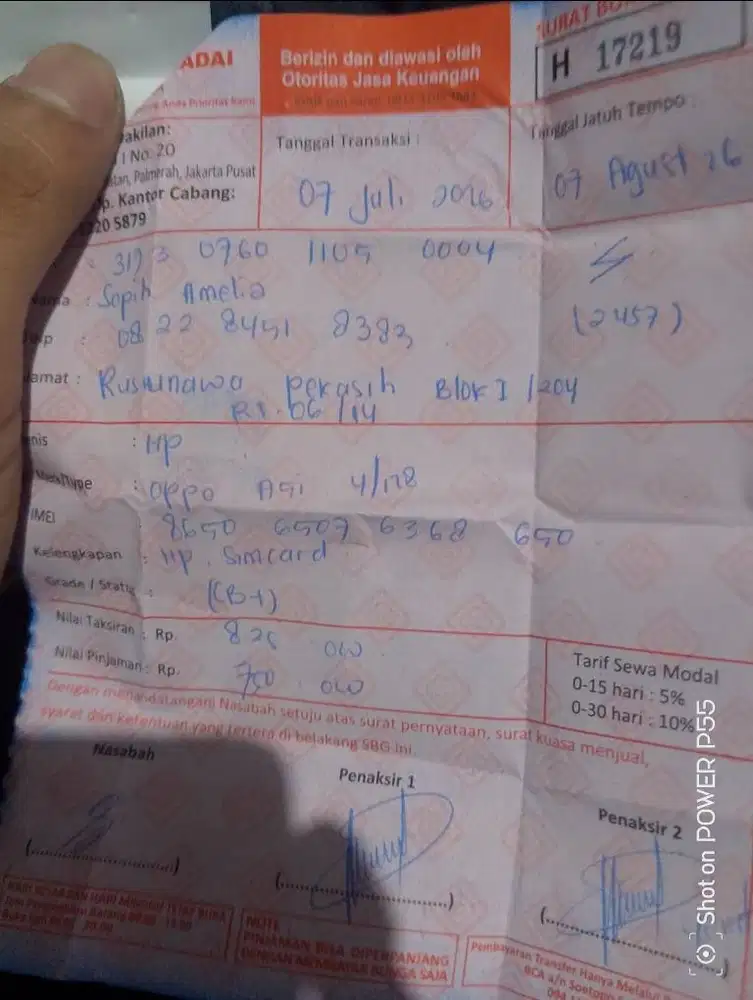 ADAI
Berizin dan diawasi oleh
Otoritas Jasa Keuangan
SURAT BU
H 17219
Anda Prioritas Kami
akilan:
No. 20
tan, Palmerah, Jakarta Pusat
p. Kantor Cabang:
20 5879
Tanggal Transaksi :
07 Juli 2026
Tanggal Jatuh Tempo :
07 Agust 26
: 3173 0960 1105 0004
ama : Sopih Amelia
(2457)
: 0822 8451 8383
amat : Rusunawa pekasih Blok I /204
RT. 06 /14
enis : HP
Merk/Type : OPPO A5i 4/128
IMEI : 8650 6507 6368 650
Kelengkapan : HP. Simcard
Grade / Status :
Nilai Taksiran : Rp. 825 000
Nilai Pinjaman : Rp. 750 . 000
Tarif Sewa Modal
0-15 hari : 5%
0-30 hari : 10%
Dengan menandatangani Nasabah setuju atas surat pernyataan, surat kuasa menjual,
syarat dan ketentuan yang tertera di belakang SBG ini.
Nasabah
Penaksir 1
Penaksir 2
(....................)
(....................)
(....................)
HARI BESAR DAN HARI MINGGU TETAP BUKA
NOTE
PINJAMAN BISA DIPERPANJANG
DENGAN MEMBAYAR BUNGA SAJA
Pembayaran Transfer Hanya Melalui
BCA a/n Soetopo
Shot on POWER P55